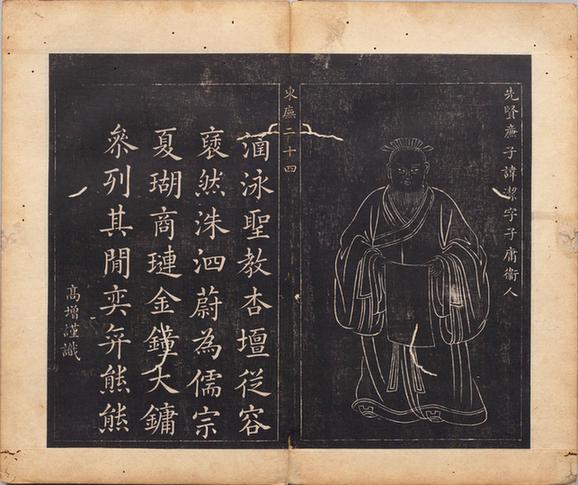 先賢廉子諱潔字子庸衛人
東廡二十四
涵泳聖教杏壇從容
褎然洙泗蔚為儒宗
夏瑚商璉金鐘大鏞
叅列其閒奕奕熊熊
高增謹識